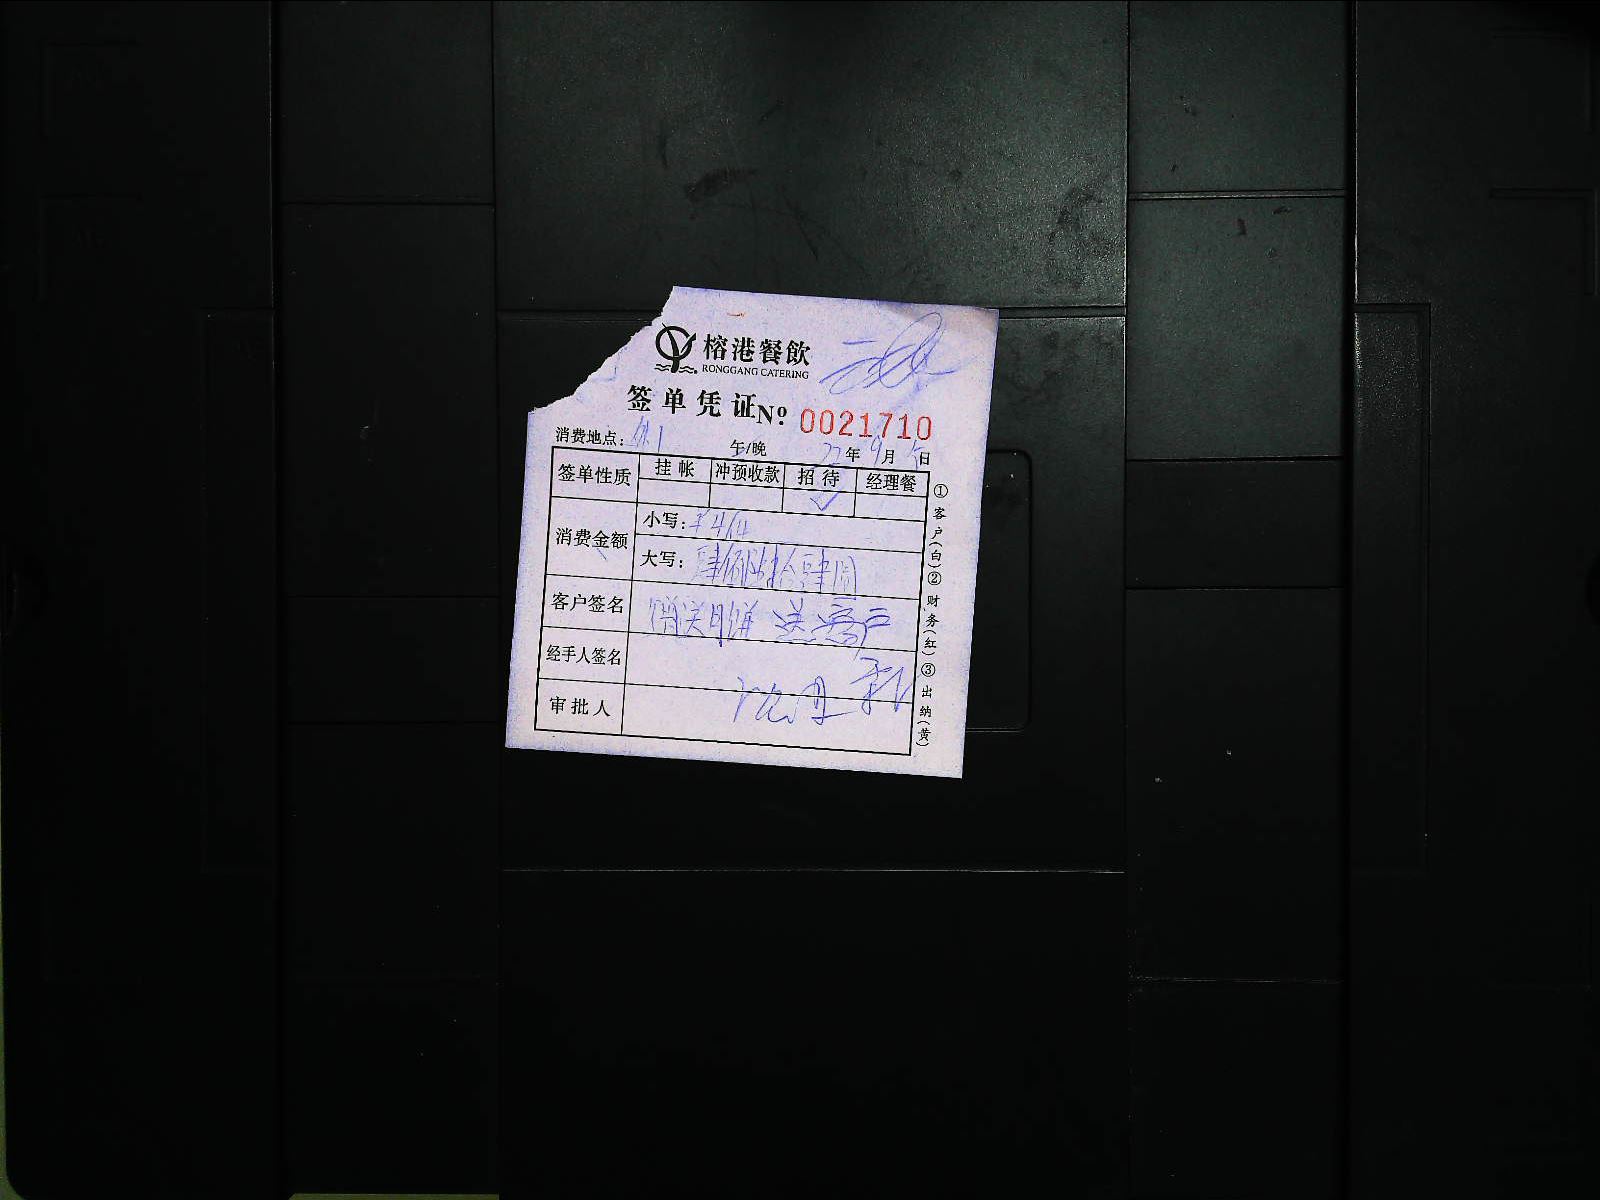 榕港餐飲
RONGGANG CATERING
签单凭证 Nº: 0021710
消费地点: 午/晚 22年9月 日
签单性质 挂帐 冲预收款 招待 经理餐
✓
消费金额 小写: ¥464
大写: 肆佰陆拾肆圆
客户签名 赠送月饼 送客户
经手人签名
审批人
①客户(白)②财务(红)③出纳(黄)